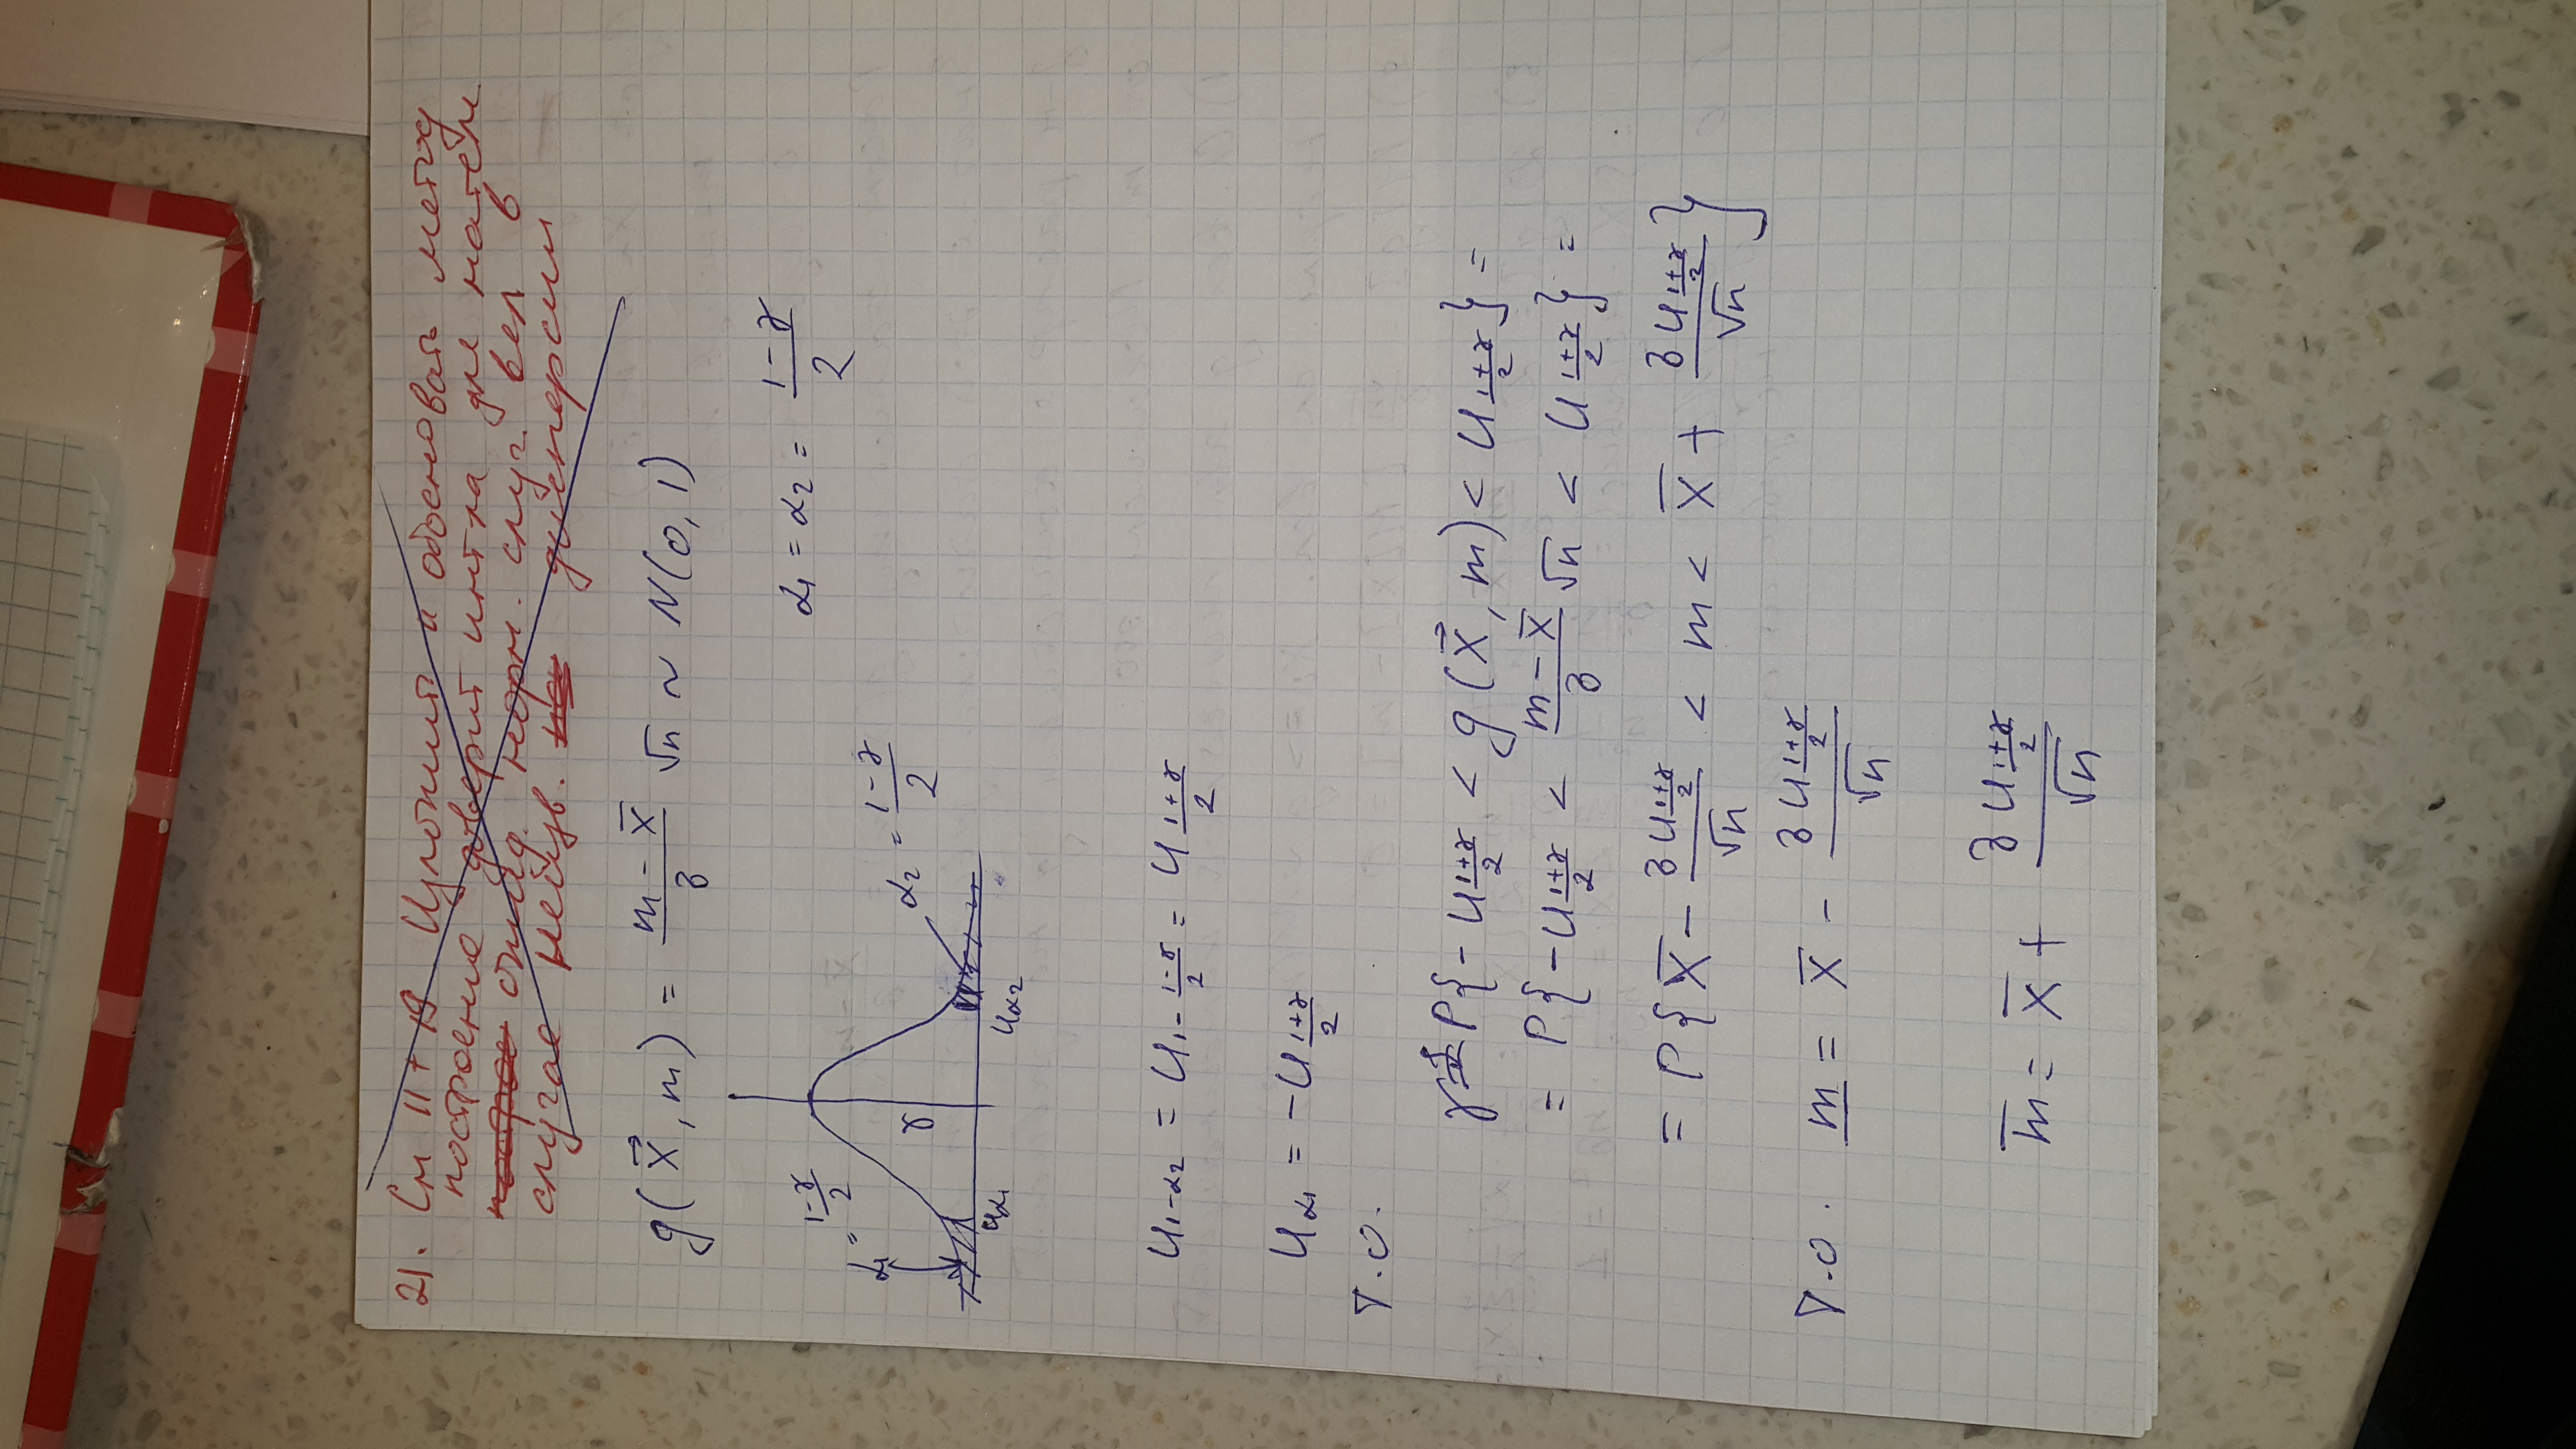 21. См 11 + 19 Изложить и обосновать метод
построение доверит инт ла для матем
ожид. норм. случ. вел в
случае неизв. дисперсии
g(X⃗, m) = (m - X̄)/σ √n ~ N(0, 1)
α₁ = α₂ = (1-γ)/2
α₁ = (1-γ)/2
α₂ = (1-γ)/2
γ
u_α₁
u_α₂
u_{1-α₂} = u_{1-(1-γ)/2} = u_{(1+γ)/2}
u_α₁ = -u_{(1+γ)/2}
Т.О.
γ = P{-u_{(1+γ)/2} < g(X⃗, m) < u_{(1+γ)/2}} =
= P{-u_{(1+γ)/2} < (m - X̄)/σ √n < u_{(1+γ)/2}} =
= P{X̄ - σu_{(1+γ)/2}/√n < m < X̄ + σu_{(1+γ)/2}/√n}
Т.О. m̲ = X̄ - σu_{(1+γ)/2}/√n
m̄ = X̄ + σu_{(1+γ)/2}/√n